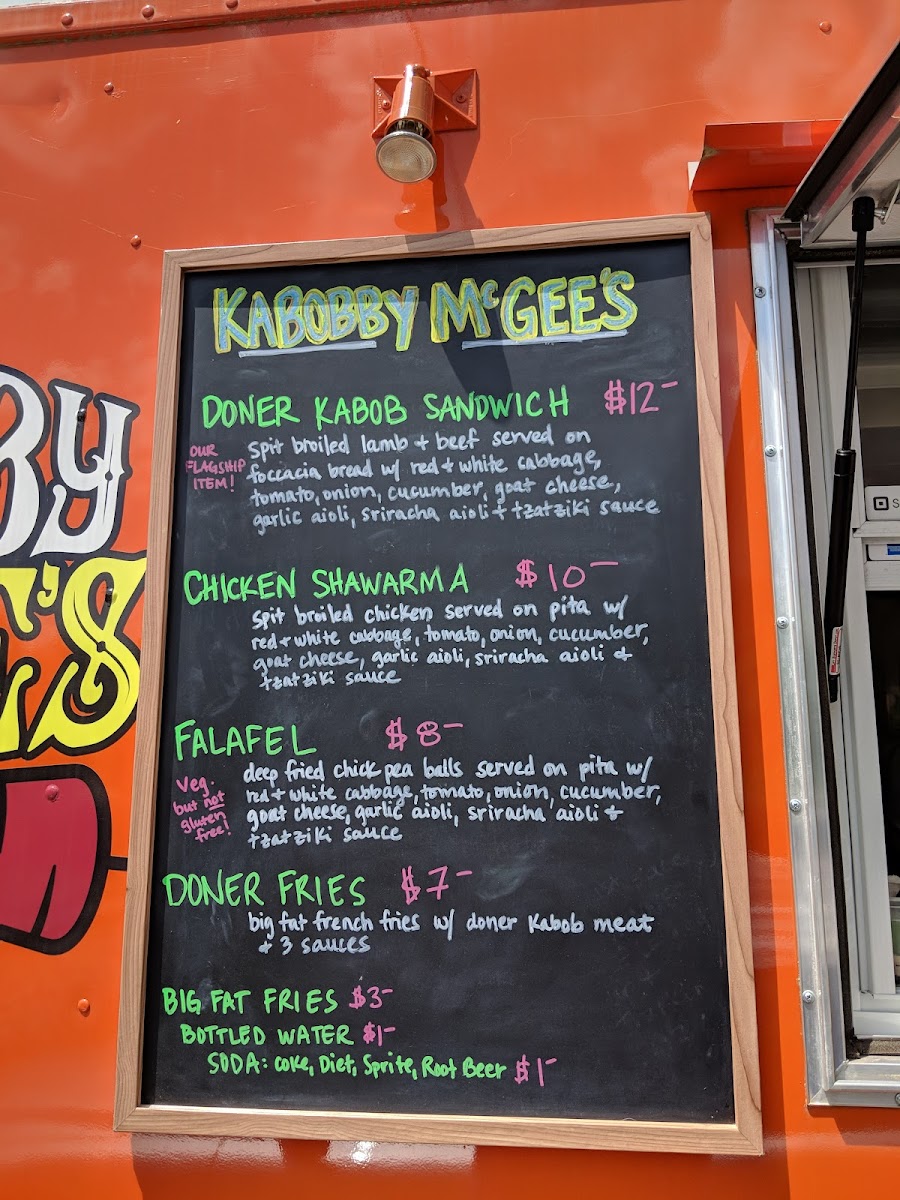 KABOBBY McGEE'S
DONER KABOB SANDWICH $12-
OUR FLAGSHIP ITEM!
spit broiled lamb + beef served on
foccacia bread w/ red + white cabbage,
tomato, onion, cucumber, goat cheese,
garlic aioli, sriracha aioli + tzatziki sauce
CHICKEN SHAWARMA $10-
spit broiled chicken served on pita w/
red + white cabbage, tomato, onion, cucumber,
goat cheese, garlic aioli, sriracha aioli +
tzatziki sauce
FALAFEL $8-
Veg. but not gluten free!
deep fried chick pea balls served on pita w/
red + white cabbage, tomato, onion, cucumber,
goat cheese, garlic aioli, sriracha aioli +
tzatziki sauce
DONER FRIES $7-
big fat french fries w/ doner kabob meat
+ 3 sauces
BIG FAT FRIES $3-
BOTTLED WATER $1-
SODA: Coke, Diet, Sprite, Root Beer $1-
BY
'S